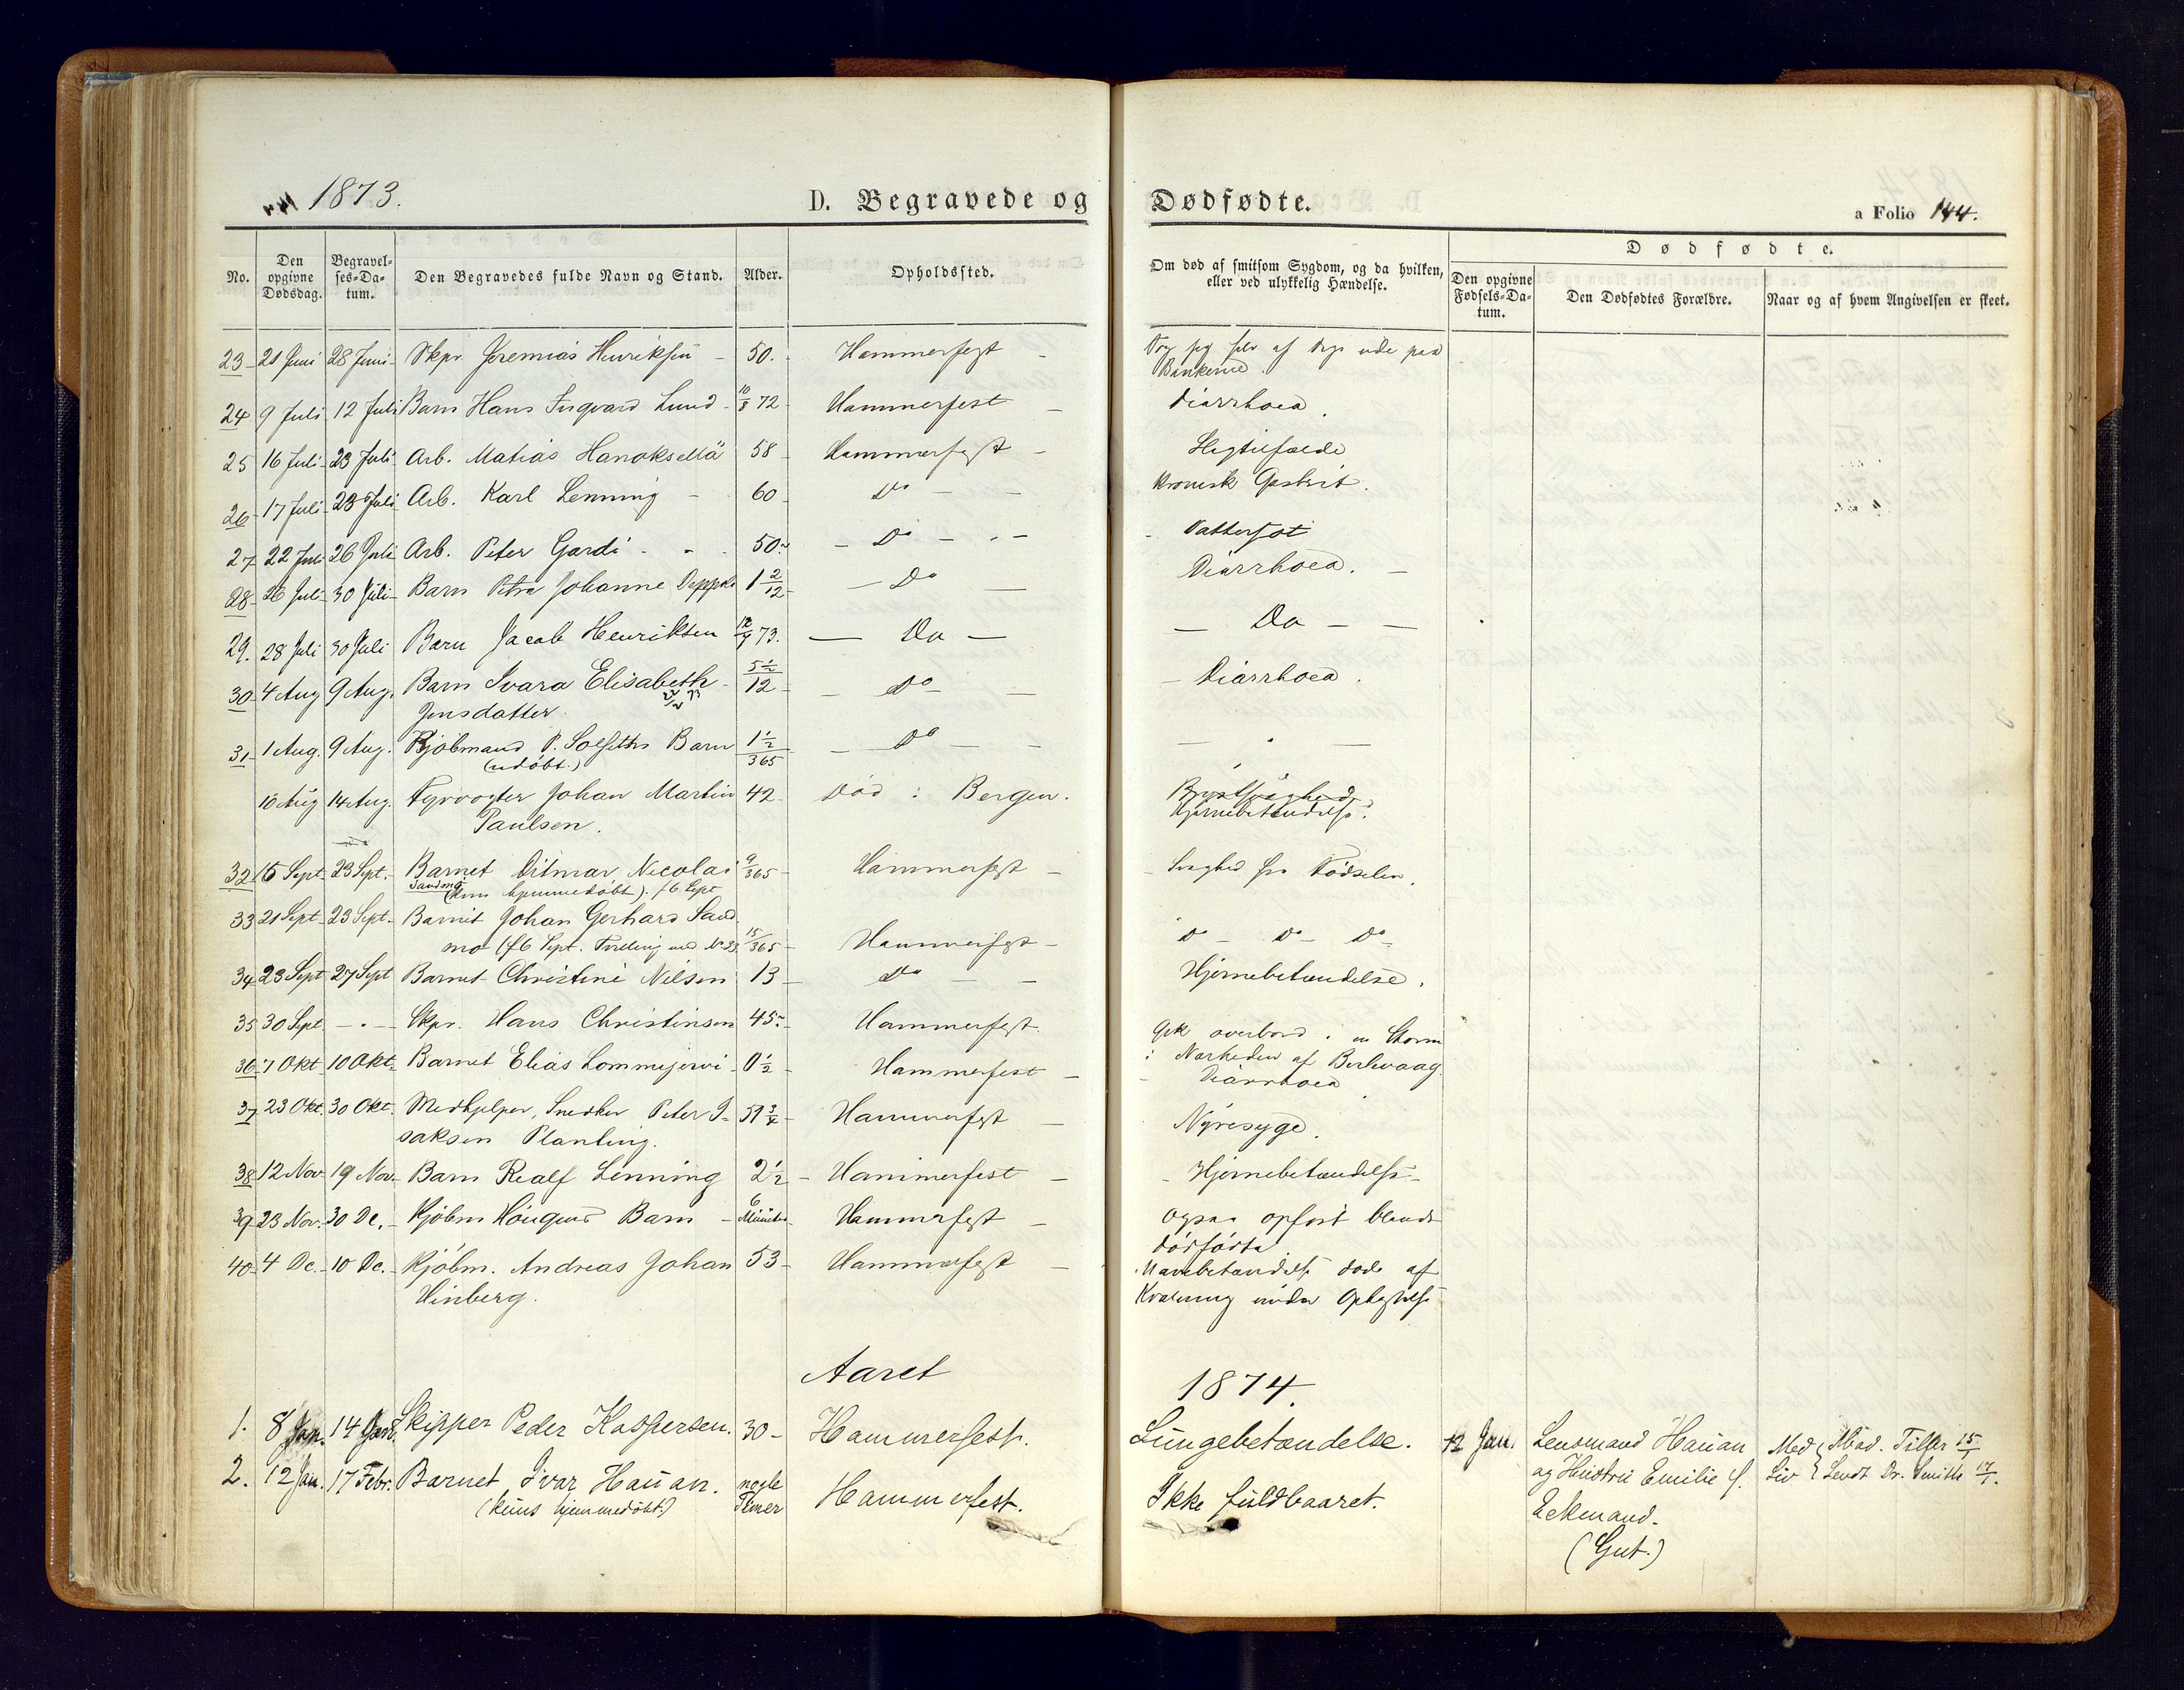 1873.
D. Begravede og Dødfødte.
a Folio 144.
No. Den opgivne Dødsdag. Begravelses-Datum. Den Begravedes fulde Navn og Stand. Alder. Opholdssted. Om død af smitsom Sygdom, og da hvilken, eller ved ulykkelig Hændelse. Dødfødte. Den opgivne Fødsels-Datum. Den Dødfødtes Forældre. Naar og af hvem Angivelsen er skeet.
23 21 Juni 28 Juni Skpr. Jeremias Henriksen 50. Hammerfest ude paa
Bankerne.
24 9 Juli 12 Juli Barn Hans Ingvard Lund 10/8 72 Hammerfest Diarrhoea.
25 16 Juli 23 Juli Arb. Matias Hanoksellä 58 Hammerfest Slagtilfælde
26 17 Juli 23 Juli Arb. Karl Lenning 60 Do Kronisk Gastrit.
27 22 Juli 26 Juli Arb. Peter Gardi 50 Do Vattersot
28 26 Juli 30 Juli Barn Petra Johanne Deppke 1 2/12 Do Diarrhoea.
29. 28 Juli 30 Juli Barn Jacob Henriksen 12/4 73. Do Do
30 4 Aug 9 Aug. Barn Ivara Elisabeth 5 1/2/12 Do Diarrhoea.
Jensdatter.
31 1 Aug. 9 Aug. Kjøbmand P. Solfeths Barn 1 1/2/365 Do
(udøbt.)
10 Aug 14 Aug. Fyrvogter Johan Martin 42 Død i Bergen. Brystsvaghed,
Paulsen. Hjernebetændelse.
32 15 Sept 23 Sept. Barnet Ditmar Nicolai 9/365 Hammerfest Svaghed fra Fødselen.
Sandmo (kun hjemmedøbt). f 6 Sept
33 21 Sept 23 Sept. Barnet Johan Gerhard Sand
mo (f 6 Sept. Tvilling med No 33 15/365 Hammerfest Do Do Do
34 23 Sept 27 Sept Barnet Christine Nilsen 13 Do Hjernebetændelse.
35 30 Sept Skpr. Hans Christinsen 45 Hammerfest Gik overbord i en Storm
i Nærheden af Berlevaag
36 7 Okt 10 Okt. Barnet Elias Lommijervi 0 1/2 Hammerfest Diarrhoea
37 23 Okt. 30 Okt. Medhjelper, Snedker Peter I- 51 3/4 Hammerfest Nyresyge.
saksen Planting.
38 12 Nov 19 Nov. Barn Realf Lenning 2 1/2 Hammerfest Hjernebetændelse
39 23 Nov. 30 De. Kjøbm Barn 6 Hammerfest Ogsaa opført blandt
dødfødte
40 4 De. 10 De. Kjøbm. Andreas Johan 53 Hammerfest Mavebetændelse døde af
Hinberg. Kvælning under
Aaret 1874.
1. 8 Jan. 14 Jan. Skipper Peder Kaspersen. 30 Hammerfest. Lungebetændelse. 12 Jan. Lensmand Hauan Med Mad. Tiller 15/1
og Hustru Emilie f. Liv Lendt Dr. Smith 17/1.
2. 12 Jan. 17 Febr. Barnet Ivar Hauan. nogle Timer Hammerfest. Ikke fuldbaaret. Eckmand.
(kuns hjemmedøbt.) (Gut.)